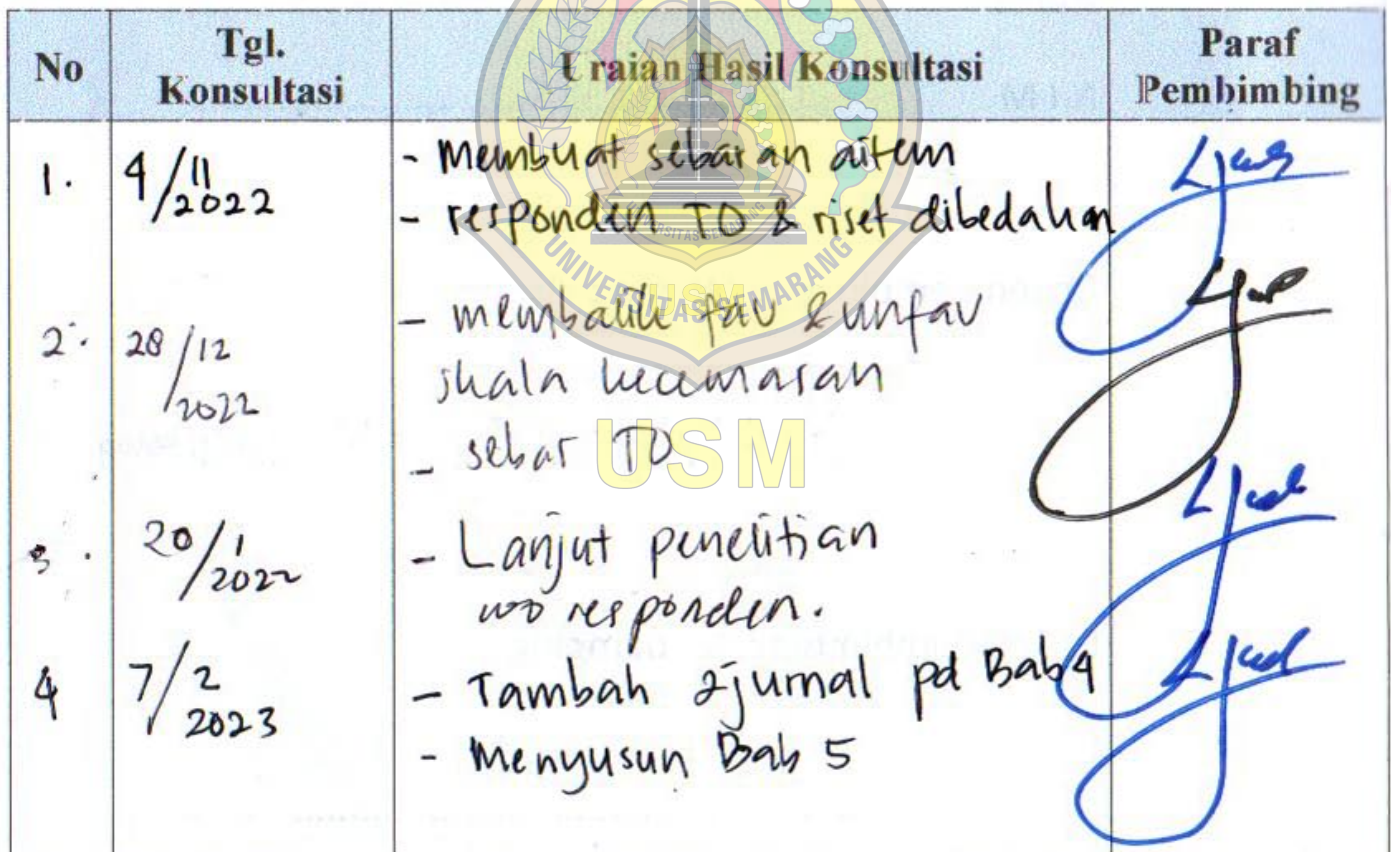 No
Tgl. Konsultasi
Uraian Hasil Konsultasi
Paraf Pembimbing
1. 4/11 2022
- Membuat sebaran aitem
- responden TO & riset dibedakan
2. 28/12 2022
- membalik fav & unfav
skala kecemasan
- sebar TO
3. 20/1 2022
- Lanjut penelitian
responden.
4 7/2 2023
- Tambah 2 jurnal pd Bab 4
- Menyusun Bab 5
UNIVERSITAS SEMARANG
USM
USM